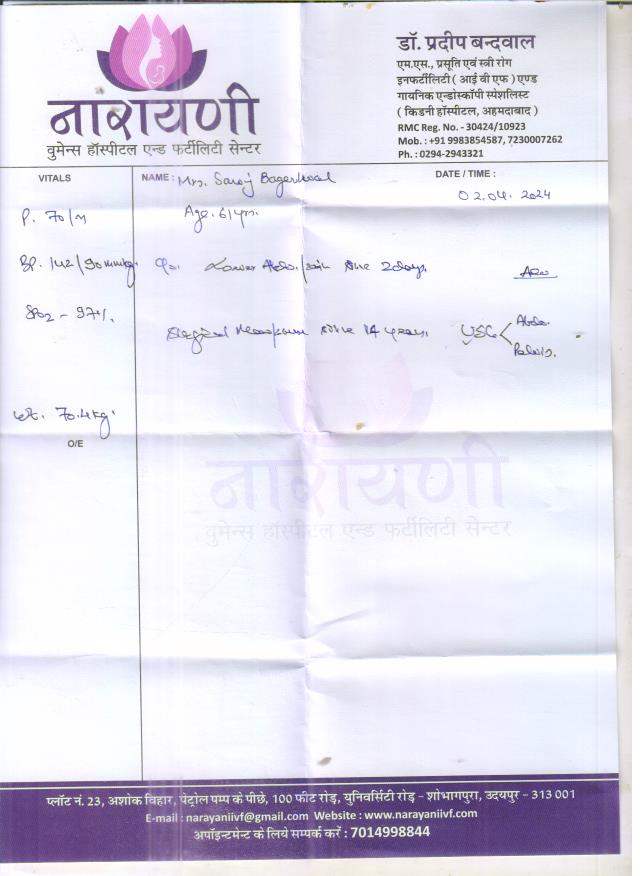 नारायणी
वुमेन्स हॉस्पीटल एन्ड फर्टीलिटी सेन्टर
डॉ. प्रदीप बन्दवाल
एम.एस., प्रसूति एवं स्त्री रोग
इनफर्टीलिटी ( आई वी एफ ) एण्ड
गायनिक एन्डोस्कॉपी स्पेशलिस्ट
( किडनी हॉस्पीटल, अहमदाबाद )
RMC Reg. No. - 30424/10923
Mob. : +91 9983854587, 7230007262
Ph. : 0294-2943321
VITALS
NAME : Mrs. Saroj Bagerwal
DATE / TIME :
02.04.2024
P. 70/m
Age. 61 yrs.
BP. 142/90 mmHg.
c/o. Lower Abdo. pain since 2 days.
SPO2 - 97%.
Surgical Menopause since 14 years.
USG
Abdo.
Pelvis.
wt. 70.4 kg.
O/E
नारायणी
वुमेन्स हॉस्पीटल एन्ड फर्टीलिटी सेन्टर
प्लॉट नं. 23, अशोक विहार, पेट्रोल पम्प के पीछे, 100 फीट रोड़, युनिवर्सिटी रोड़ – शोभागपुरा, उदयपुर – 313 001
E-mail : narayaniivf@gmail.com Website : www.narayaniivf.com
अपॉइन्टमेन्ट के लिये सम्पर्क करें : 7014998844